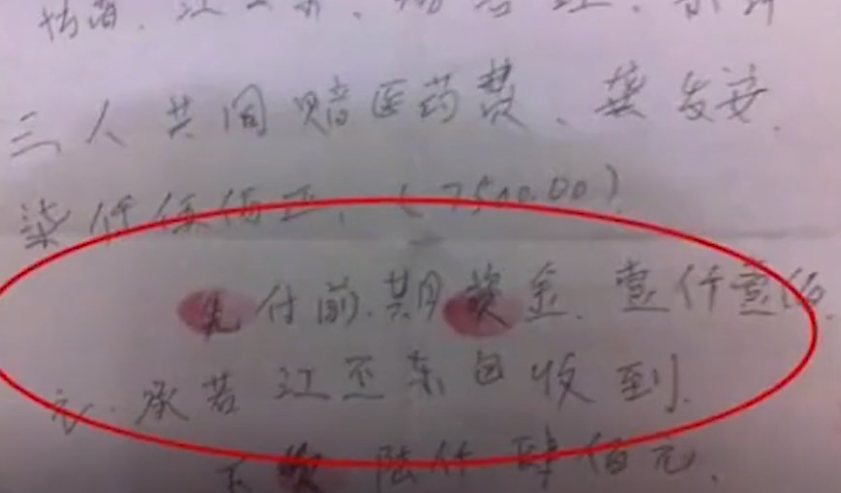 三人共同赔医药费、龚发安、
柒仟伍佰正、(7500.00)
先付前.期资金、壹仟壹佰
元、承若江丕东已收到、
下欠陆仟肆佰元、